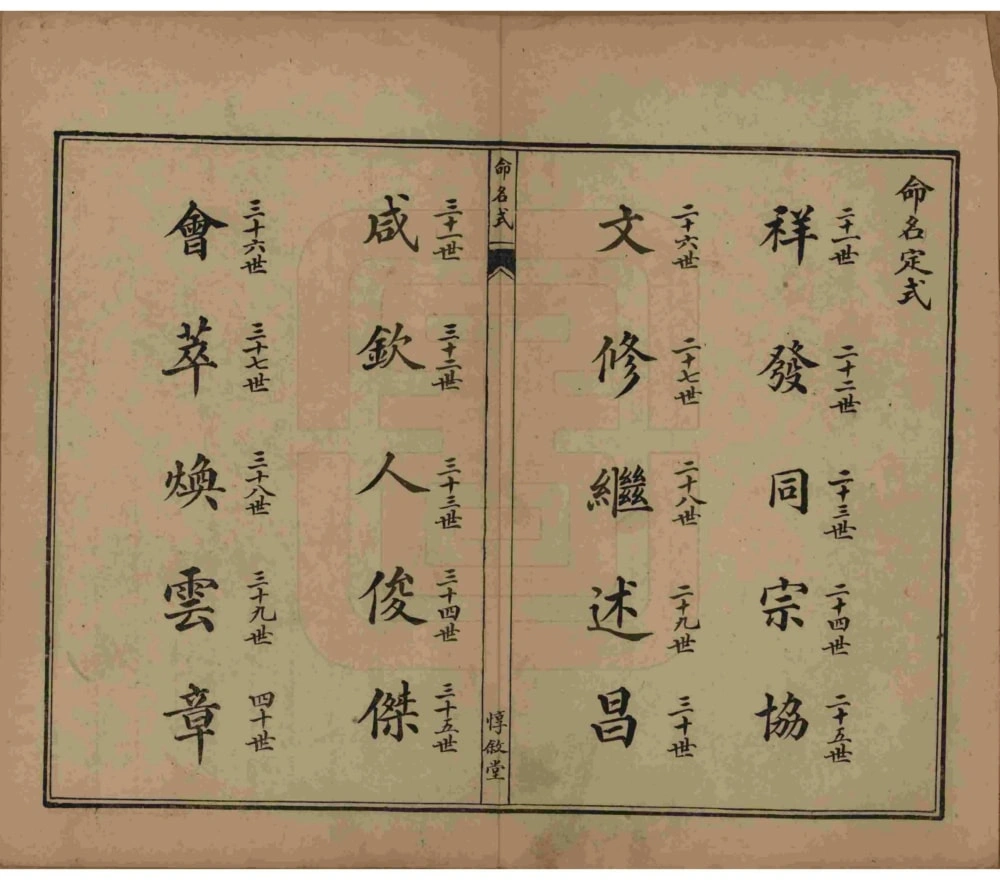 命名定式
二十一世 二十二世 二十三世 二十四世 二十五世
祥發同宗協
二十六世 二十七世 二十八世 二十九世 三十世
文修繼述昌
命名式
惇敘堂
三十一世 三十二世 三十三世 三十四世 三十五世
咸欽人俊傑
三十六世 三十七世 三十八世 三十九世 四十世
會萃煥雲章